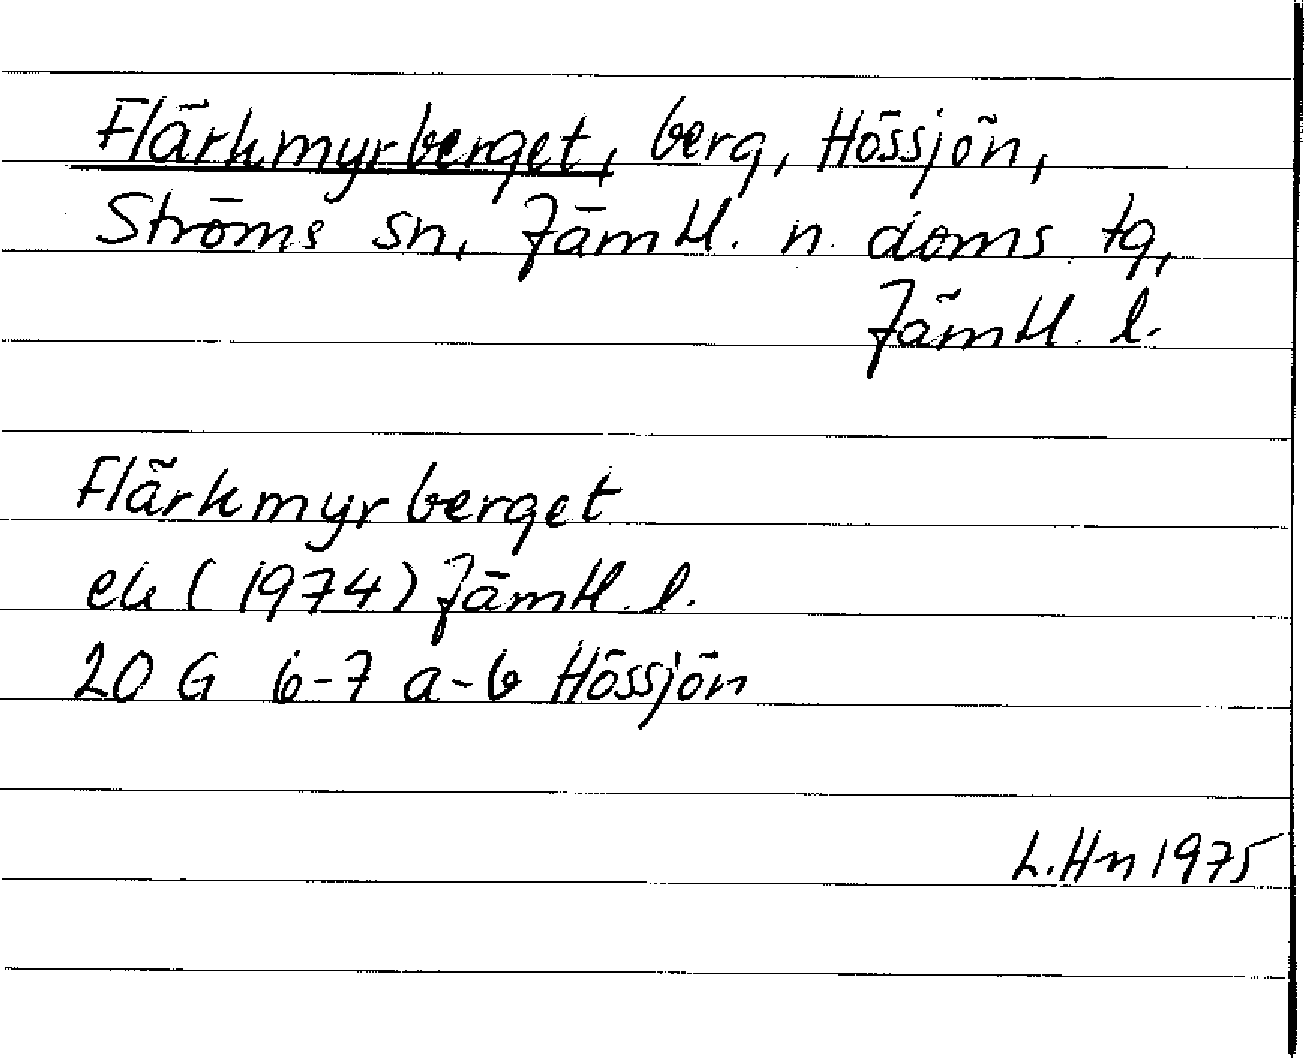 Flärkmyrberget, berg, Hössjön,
Ströms sn, Jämtl. n. doms. tg,
Jämtl. l.
Flärkmyrberget
ek (1974) Jämtl. l.
20 G 6-7 a-b Hössjön
L. Hn 1975